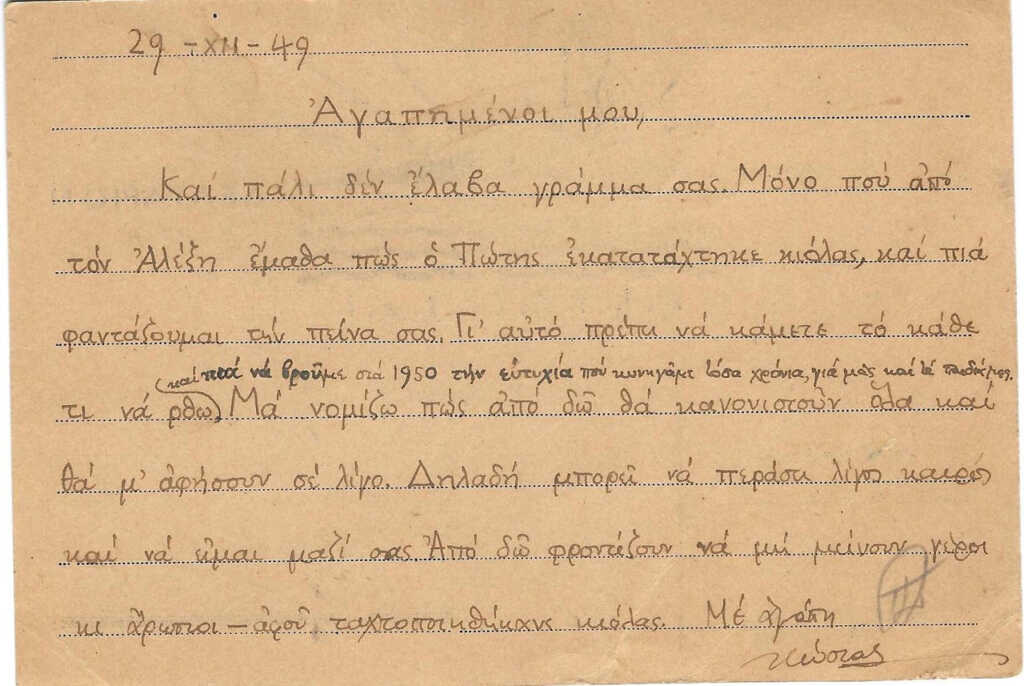 29 -XII- 49
Ἀγαπημένοι μου,
Καί πάλι δέν ἔλαβα γράμμα σας. Μόνο πού ἀπό
τόν Ἀλέξη ἔμαθα πώς ὁ Πώτης ἐκατατάχτηκε κιόλας, καί πιά
φαντάζουμαι τήν πείνα σας. Γι' αὐτό πρέπει νά κάμετε τό κάθε
(καί νά βροῦμε στά 1950 τήν εὐτυχία πού κυνηγᾶμε τόσα χρόνια, γιά μᾶς καί τά παιδιά μας.
τι νά ρθω) Μά νομίζω πώς ἀπό δῶ θά κανονιστοῦν ὅλα καί
θά μ' ἀφήσουν σέ λίγο. Δηλαδή μπορεῖ νά περάσει λίγος καιρός
καί νά εἶμαι μαζί σας. Ἀπό δῶ φροντίζουν νά μή μείνουν γέροι
κι ἄρωστοι — ἀφοῦ ταχτοποιηθήκανε κιόλας. Μέ ἀγάπη
Κώστας